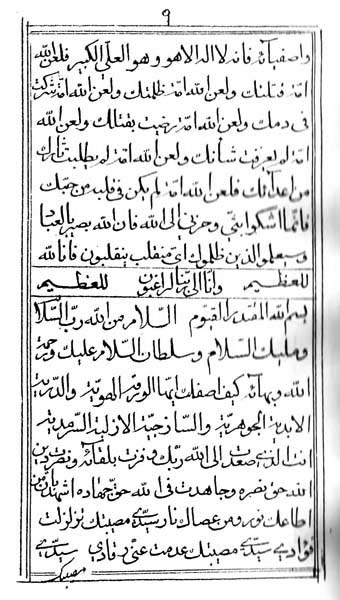 ٩
واصفیآئه فانه لا اله الا هو وهو العلی الکبیر فلعن الله
امة قتلتك ولعن الله امة ظلمتك ولعن الله امة شرکت
فی دمك ولعن الله امة رضیت بقتلك ولعن الله
امة لم یعرفت شأنك ولعن الله امة لم یطلبت ثارك
من اعدآئك فلعن الله امة لم یکن فی قلبه من حبّك
فانّما اشکو بثی وحزنی الی الله فان الله بصیر بالعباد
وسیعلموا الذین ظلموك ای منقلب ینقلبون فانا لله
للعظیم وانّا الی ربّنا لراغبون للعظیم
بسم الله المقتدر القیوم السلام من الله ربّ السّلام
وملیك السّلام وسلطان السّلام علیك ورحمة
الله وبهائه کیف اصفك ایها الورقة الهویة والدریة
الابدیة الجوهریة والسازجیة الازلیة السرمدیة
انت الذی صعدت الی الله ربّك وفزت بلقائه ونصرت دین
الله حق نصره وجاهدت فی الله حق جهاده اشهد بان من
اطاعك نور ومن عصاك نار سیّدی مصیبتك تزلزلت
فؤادی سیّدی مصیبتك عدمت عنّی رقادی سیّدی
مصیبتك